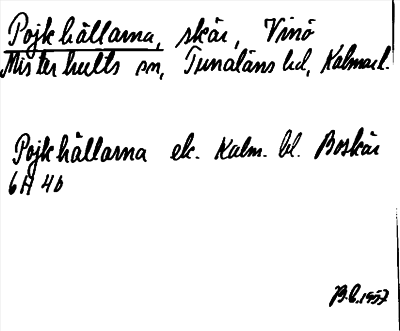 Pojkhällarna, skär, Vinö
Misterhults sn, Tunaläns hd, Kalmar l.
Pojkhällarna ek. Kalm. bl. Boskär
6A 4b
B.E. 1957